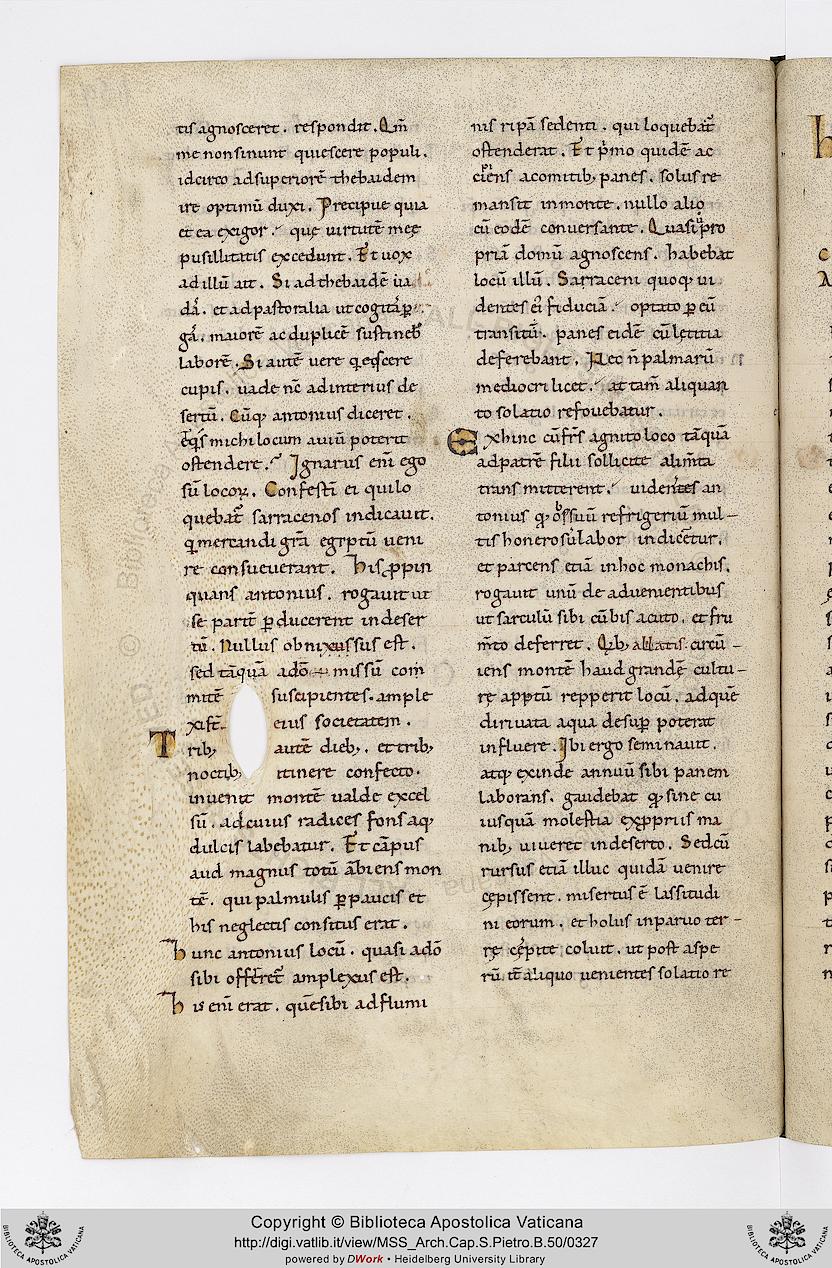 tis agnosceret. respondit. Qm̄
me non sinunt quiescere populi.
idcirco ad superiorē thebaidem
ire optimū duxi. Precipue quia
et ea exigor. que uirtutē meę
pusillitatis excedunt. Et uox
ad illū ait. Si ad thebaidē ua
dā. et ad pastoralia ut cogitā p̱
gā. maiorē ac duplicē sustineb
laborē. Si autē uere q̇eq̇scere
cupis. uade nc̄ ad interius de
sertū. Cūq; antonius diceret.
eq̇s michi locum auiū poterit
ostendere. Ignarus eni ego
sū locoꝝ. Confestī ei qui lo
quebat̄ sarracenos indicauit.
q̇ mercandi grā egyptū ueni
re consueuerant. his ꝓpin
quans antonius. rogauit ut
se parit̄ ꝑducerent in deser
tū. Nullus obnixussus est.
sed tāquā a dō missū com
mitē suscipientes. ample
xi st̄ eius societatem.
Trib; autē dieb;. et trib;
noctib; itinere confecto.
inuenit montē ualde excel
sū. ad cuius radices fons aq̨
dulcis labebatur. Et cāpus
aud magnus totū ābiens mon
tē. qui palmulis ꝑpaucis et
his neglectis consitus erat.
hunc antonius locū. quasi a dō
sibi offerret̄ amplexus est.
his eni erat. quē sibi ad flumi
nis ripā sedenti. qui loquebat̄
ostenderat. Et p̍mo quidē ac
cip̍ens a comitib; panes. solus re
mansit in monte. nullo alio
cū eodē conuersante. Quasi pro
priā domū agnoscens. habebat
locū illū. Sarraceni quoq; ui
dentes ei fiduciā. optato ꝑ eū
transitū. panes eidē cū lętitia
deferebant. Nec n̄ palmarū
mediocri licet. at tam̄ aliquan
to solatio refouebatur.
Exhinc cū fr̄s agnito loco tāquā
ad patrē filii sollicite alim̄ta
transmitterent. uidentes an
tonius q̱ ob suū refrigeriū mul-
tis honerosus labor indicetur.
et parcens etiā in hoc monachis.
rogauit unū de aduenientibus
ut sarculū sibi cū bis acuto. et fru
m̄to deferret. Qb; allatis circū-
iens montē haud grandē cultu-
rę apptū repperit locū. ad quē
diriuata aqua desuꝑ poterat
influere. Ibi ergo seminauit.
atq; exinde annuū sibi panem
laborans. gaudebat q̱ sine cu
iusquā molestia ex ꝓpriis ma
nib; uiueret in deserto. Sed cū
rursus etiā illuc quidā uenire
cępissent. misertus ē lassitudi
ni eorum. et holus in paruo ter-
rę cęspite coluit. ut post aspe
rū iter aliquo uenientes solatio re
Copyright © Biblioteca Apostolica Vaticana
http://digi.vatlib.it/view/MSS_Arch.Cap.S.Pietro.B.50/0327
powered by DWork • Heidelberg University Library
BIBLIOTECA APOSTOLICA VATICANA
BIBLIOTECA APOSTOLICA VATICANA